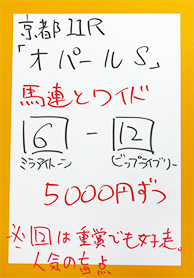 京都11R
「オパールS」
馬連とワイド
6 - 12
ミラアイトーン ビップライブリー
5000円ずつ
※12は重賞でも好走。
人気の盲点